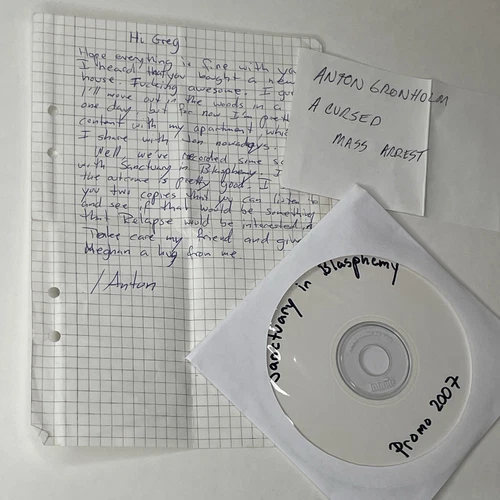 Hi Greg
Hope everything is fine with you
I heard that you bought a new
house. Fucking awesome. I
I'll move out in the woods in a
one day, but for now I'm
content with my apartment
I share with nowadays.
Well, we've recorded some
with Sanctuary in Blasphemy. I
the outcome is pretty good. I
you two copies that you can listen to
and see if that would be something
that Relapse would be interested in
Take care my friend and give
Meghan a hug from me
/Anton
ANTON GRONHOLM
A CURSED
MASS ARREST
Sanctuary in Blasphemy
Promo 2007